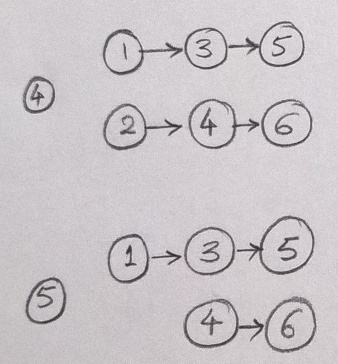 ④
1 → 3 → 5
2 → 4 → 6
⑤
1 → 3 → 5
4 → 6